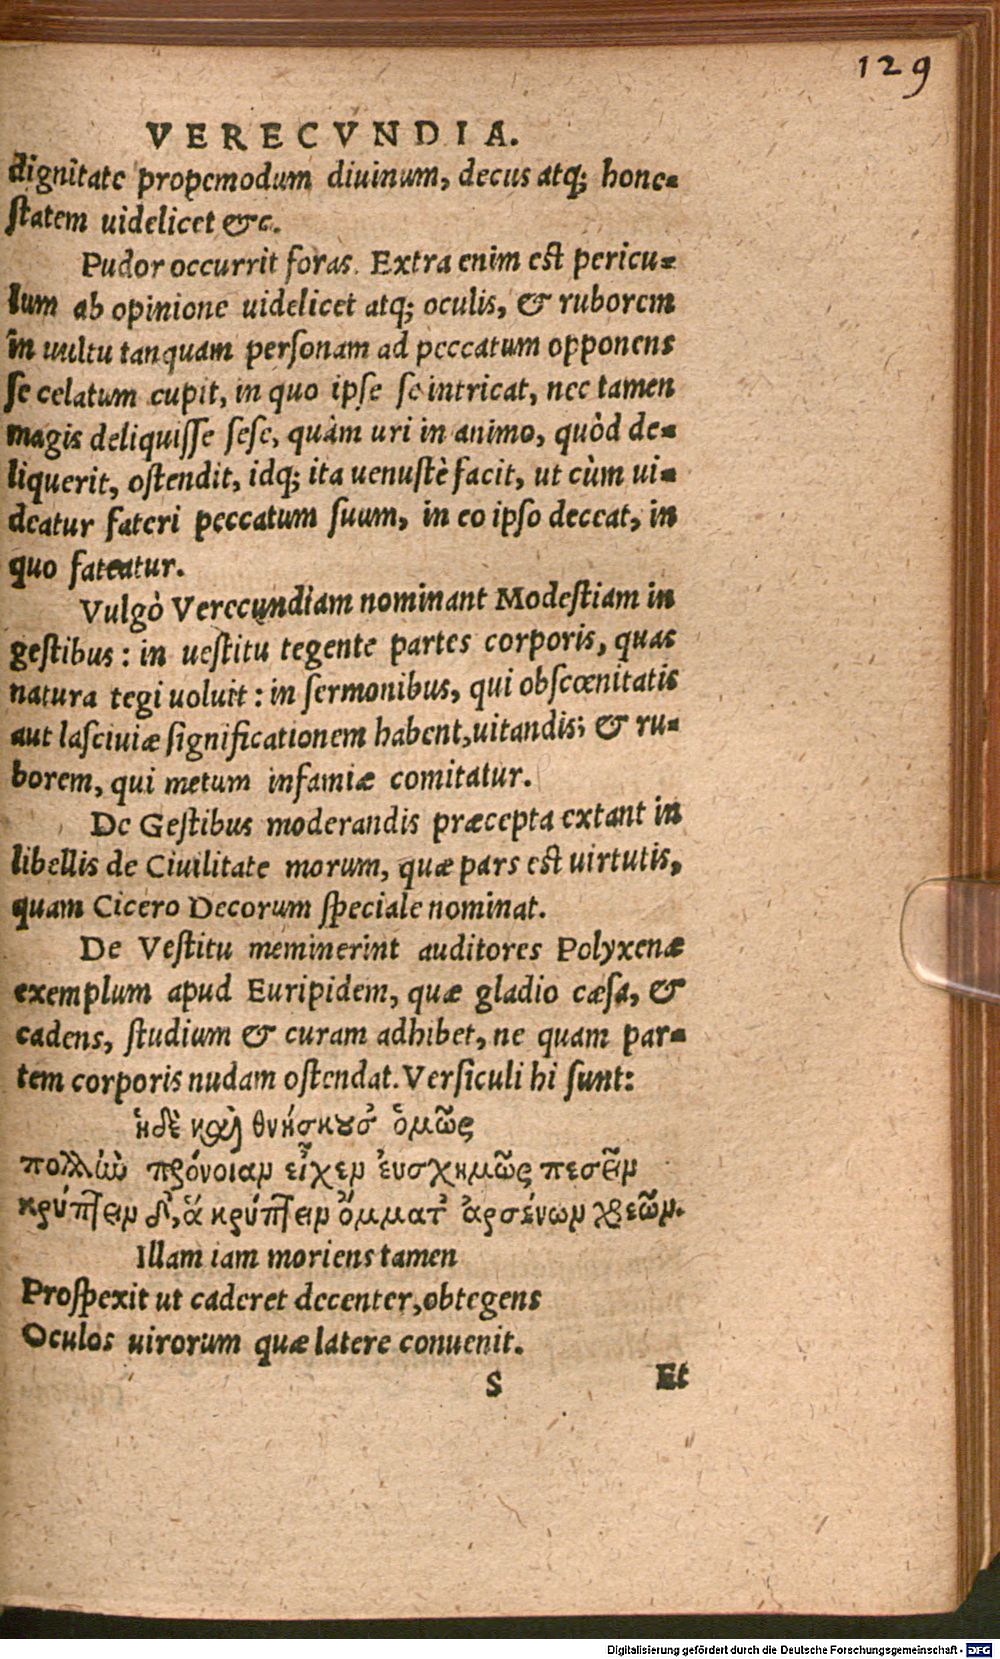 129
VERECVNDIA.
dignitate propemodum diuinum, decus atq; hone-
ſtatem uidelicet &c.
Pudor occurrit foras. Extra enim eſt pericu-
lum ab opinione uidelicet atq; oculis, & ruborem
in uultu tanquam perſonam ad peccatum opponens
ſe celatum cupit, in quo ipſe ſe intricat, nec tamen
magis deliquiſſe ſeſe, quàm uri in animo, quòd de-
liquerit, oſtendit, idq; ita uenuſtè facit, ut cùm ui-
deatur fateri peccatum ſuum, in eo ipſo deceat, in
quo fateatur.
Vulgò Verecundiam nominant Modeſtiam in
geſtibus: in ueſtitu tegente partes corporis, quas
natura tegi uoluit: in ſermonibus, qui obſcœnitatis
aut laſciuiæ ſignificationem habent, uitandis; & ru-
borem, qui metum infamiæ comitatur.
De Geſtibus moderandis præcepta extant in
libellis de Ciuilitate morum, quæ pars eſt uirtutis,
quam Cicero Decorum ſpeciale nominat.
De Veſtitu meminerint auditores Polyxenæ
exemplum apud Euripidem, quæ gladio cæſa, &
cadens, ſtudium & curam adhibet, ne quam par-
tem corporis nudam oſtendat. Verſiculi hi ſunt:
ἡδὲ καὶ θνήσκουσ᾽ ὅμῶς
πολλὼ πρόνοιαν εἶχεν ἐυσχημῶς πεσεῖν
κρύπτειν δ᾽, ἃ κρύπτειν ὄμματ᾽ ἀρσένων χρεῶν.
Illam iam moriens tamen
Proſpexit ut caderet decenter, obtegens
Oculos uirorum quæ latere conuenit.
S Et
Digitalisierung gefördert durch die Deutsche Forschungsgemeinschaft - DFG